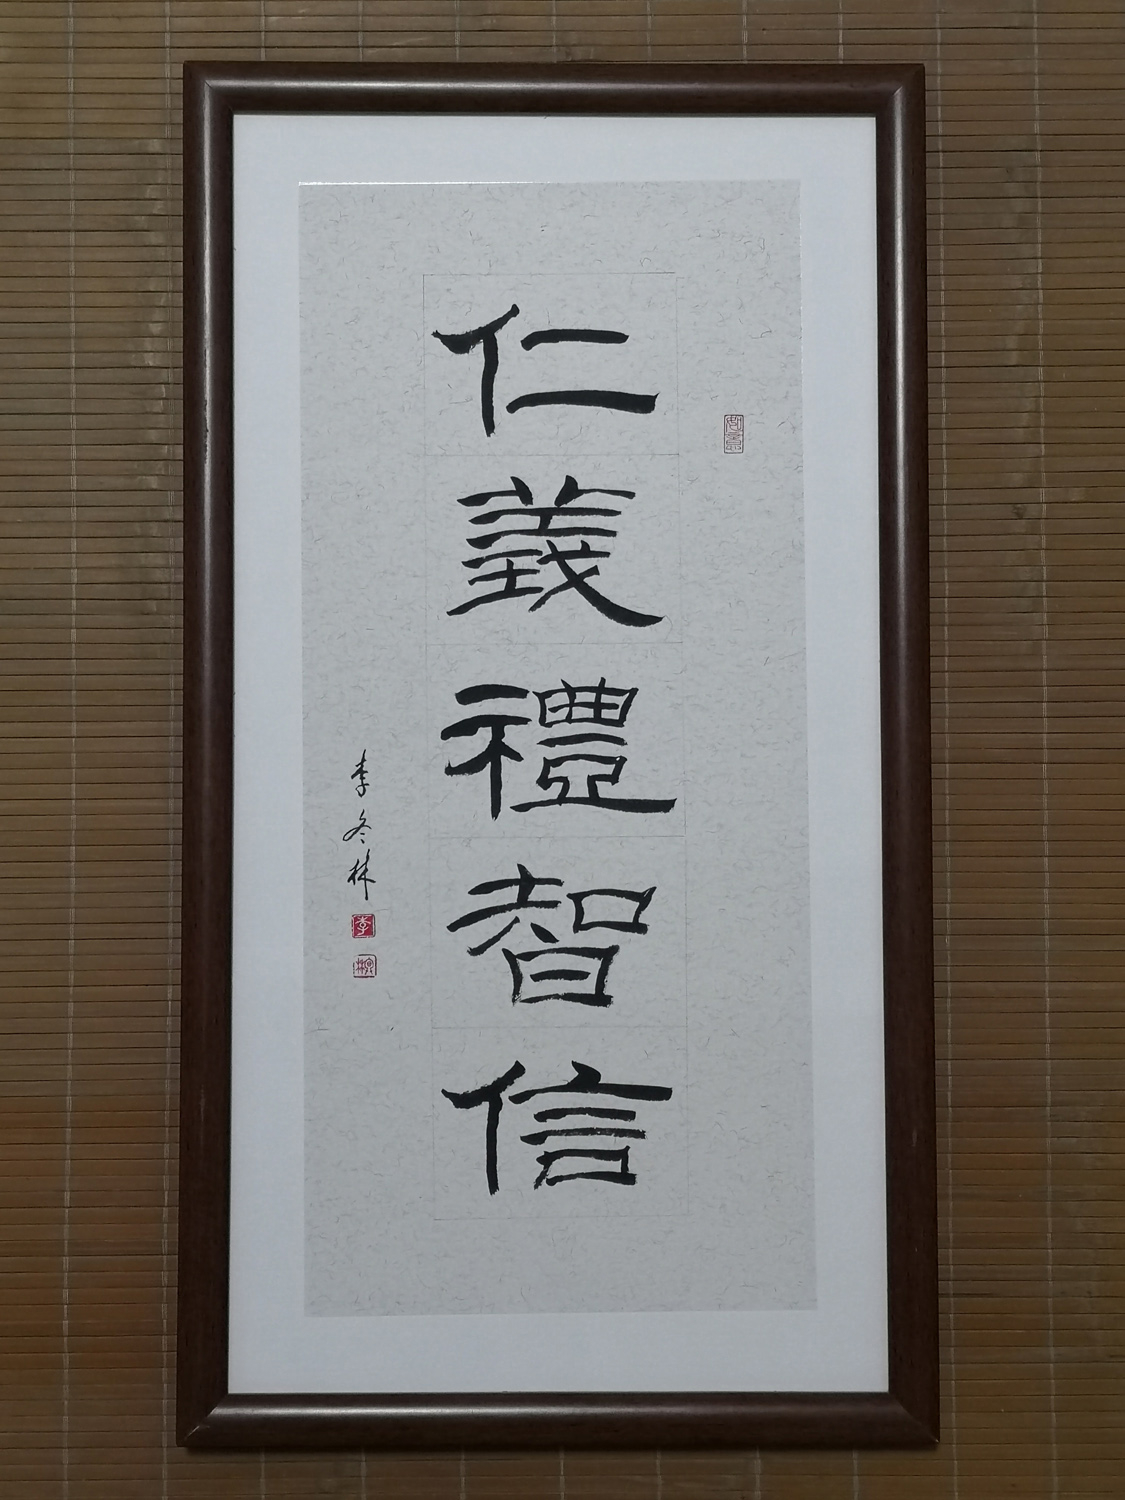 仁義禮智信
李冬林
李